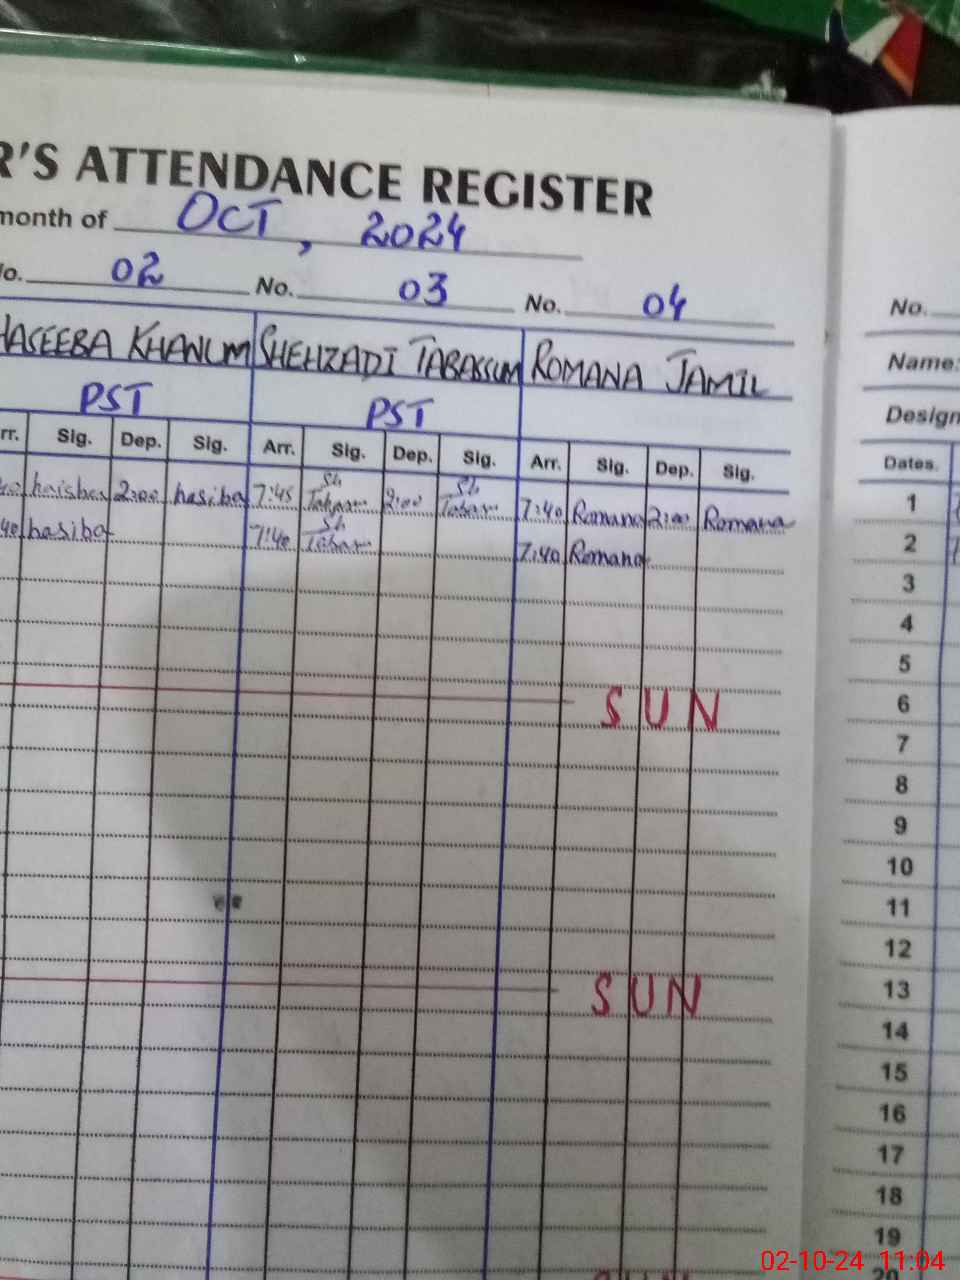 R'S ATTENDANCE REGISTER
month of OCT, 2024
No. 02 No. 03 No. 04
HASEEBA KHANUM SHEHZADI TABASSUM ROMANA JAMIL
PST PST
rr. Sig. Dep. Sig. Arr. Sig. Dep. Sig. Arr. Sig. Dep. Sig.
40 2:00 hasiba 7:45 Sh 2:00 Sh 7:40 Romana 2:00 Romana
40 hasiba 7:40 Sh 7:40 Romana
SUN
SUN
SUN
No.
Name:
Design
Dates.
1
2
3
4
5
6
7
8
9
10
11
12
13
14
15
16
17
18
19
20
02-10-24 11:04